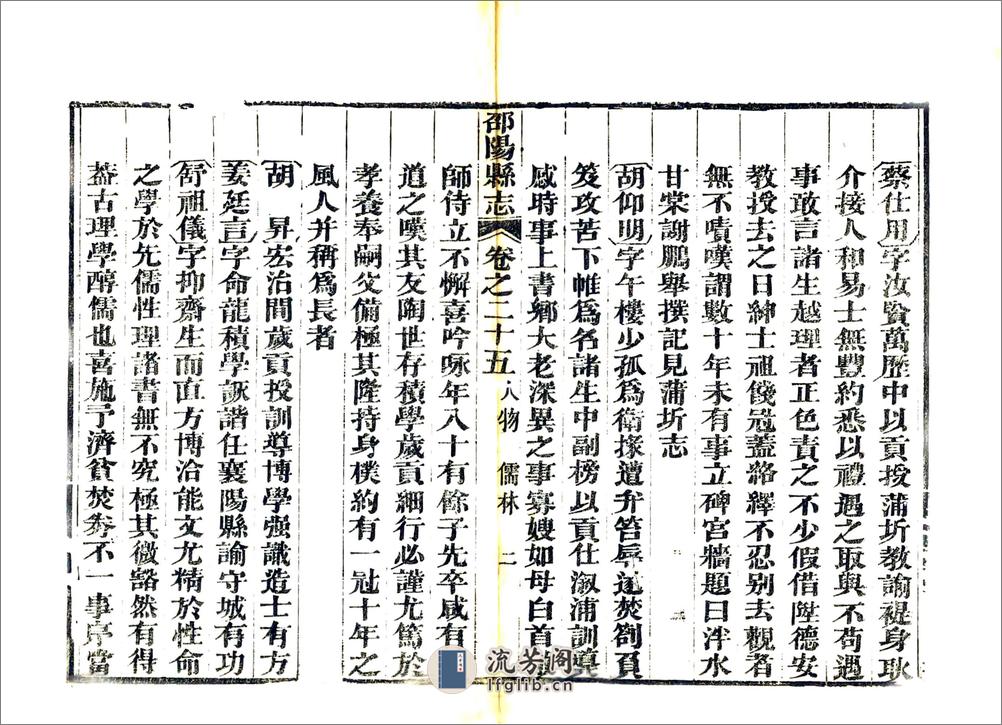 蔡仕用字汝賢萬歷中以貢授蒲圻教諭禔身耿
介接人和易士無豐約悉以禮遇之取與不苟遇
事敢言諸生越理者正色責之不少假借陞德安
教授去之日紳士祖餞冠蓋絡繹不忍別去觀者
無不嘖嘆謂數十年未有事立碑宮牆題曰泮水
甘棠謝鵬舉撰記見蒲圻志
胡仰明字午樓少孤爲衛掾遭弁笞辱遂焚劄負
笈攻苦下帷爲名諸生中副榜以貢仕溆浦訓導
感時事上書鄉大老深異之事寡嫂如母白首
邵陽縣志 卷之二十五 人物 儒林 二
師侍立不懈喜吟咏年八十有餘子先卒咸有
道之嘆其友陶世存積學歲貢細行必謹尤篤於
孝養奉嗣父備極其隆持身樸約有一冠十年之
風人并稱爲長者
胡昇宏治間歲貢授訓導博學强識造士有方
姜廷言字命龍積學詼諧任襄陽縣諭守城有功
舒祖儀字抑齋生而直方博洽能文尤精於性命
之學於先儒性理諸書無不究極其微豁然有得
蓋古理學醇儒也喜施予濟貧焚券不一事亭當
流芳阁
lfglib.cn